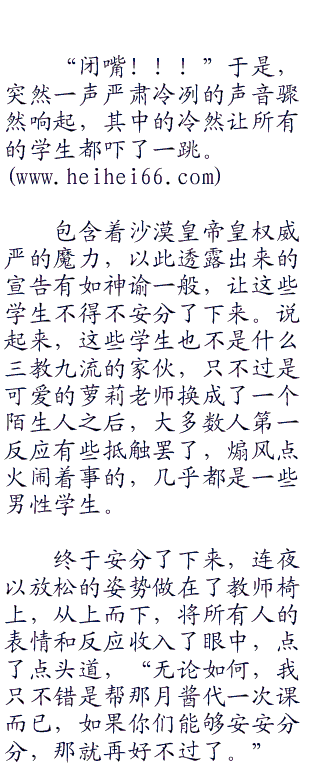 “闭嘴！！！”于是，
突然一声严肃冷冽的声音骤
然响起，其中的冷然让所有
的学生都吓了一跳。
(www.heihei66.com)
包含着沙漠皇帝皇权威
严的魔力，以此透露出来的
宣告有如神谕一般，让这些
学生不得不安分了下来。说
起来，这些学生也不是什么
三教九流的家伙，只不过是
可爱的萝莉老师换成了一个
陌生人之后，大多数人第一
反应有些抵触罢了，煽风点
火闹着事的，几乎都是一些
男性学生。
终于安分了下来，连夜
以放松的姿势做在了教师椅
上，从上而下，将所有人的
表情和反应收入了眼中，点
了点头道，“无论如何，我
只不错是帮那月酱代一次课
而已，如果你们能够安安分
分，那就再好不过了。”